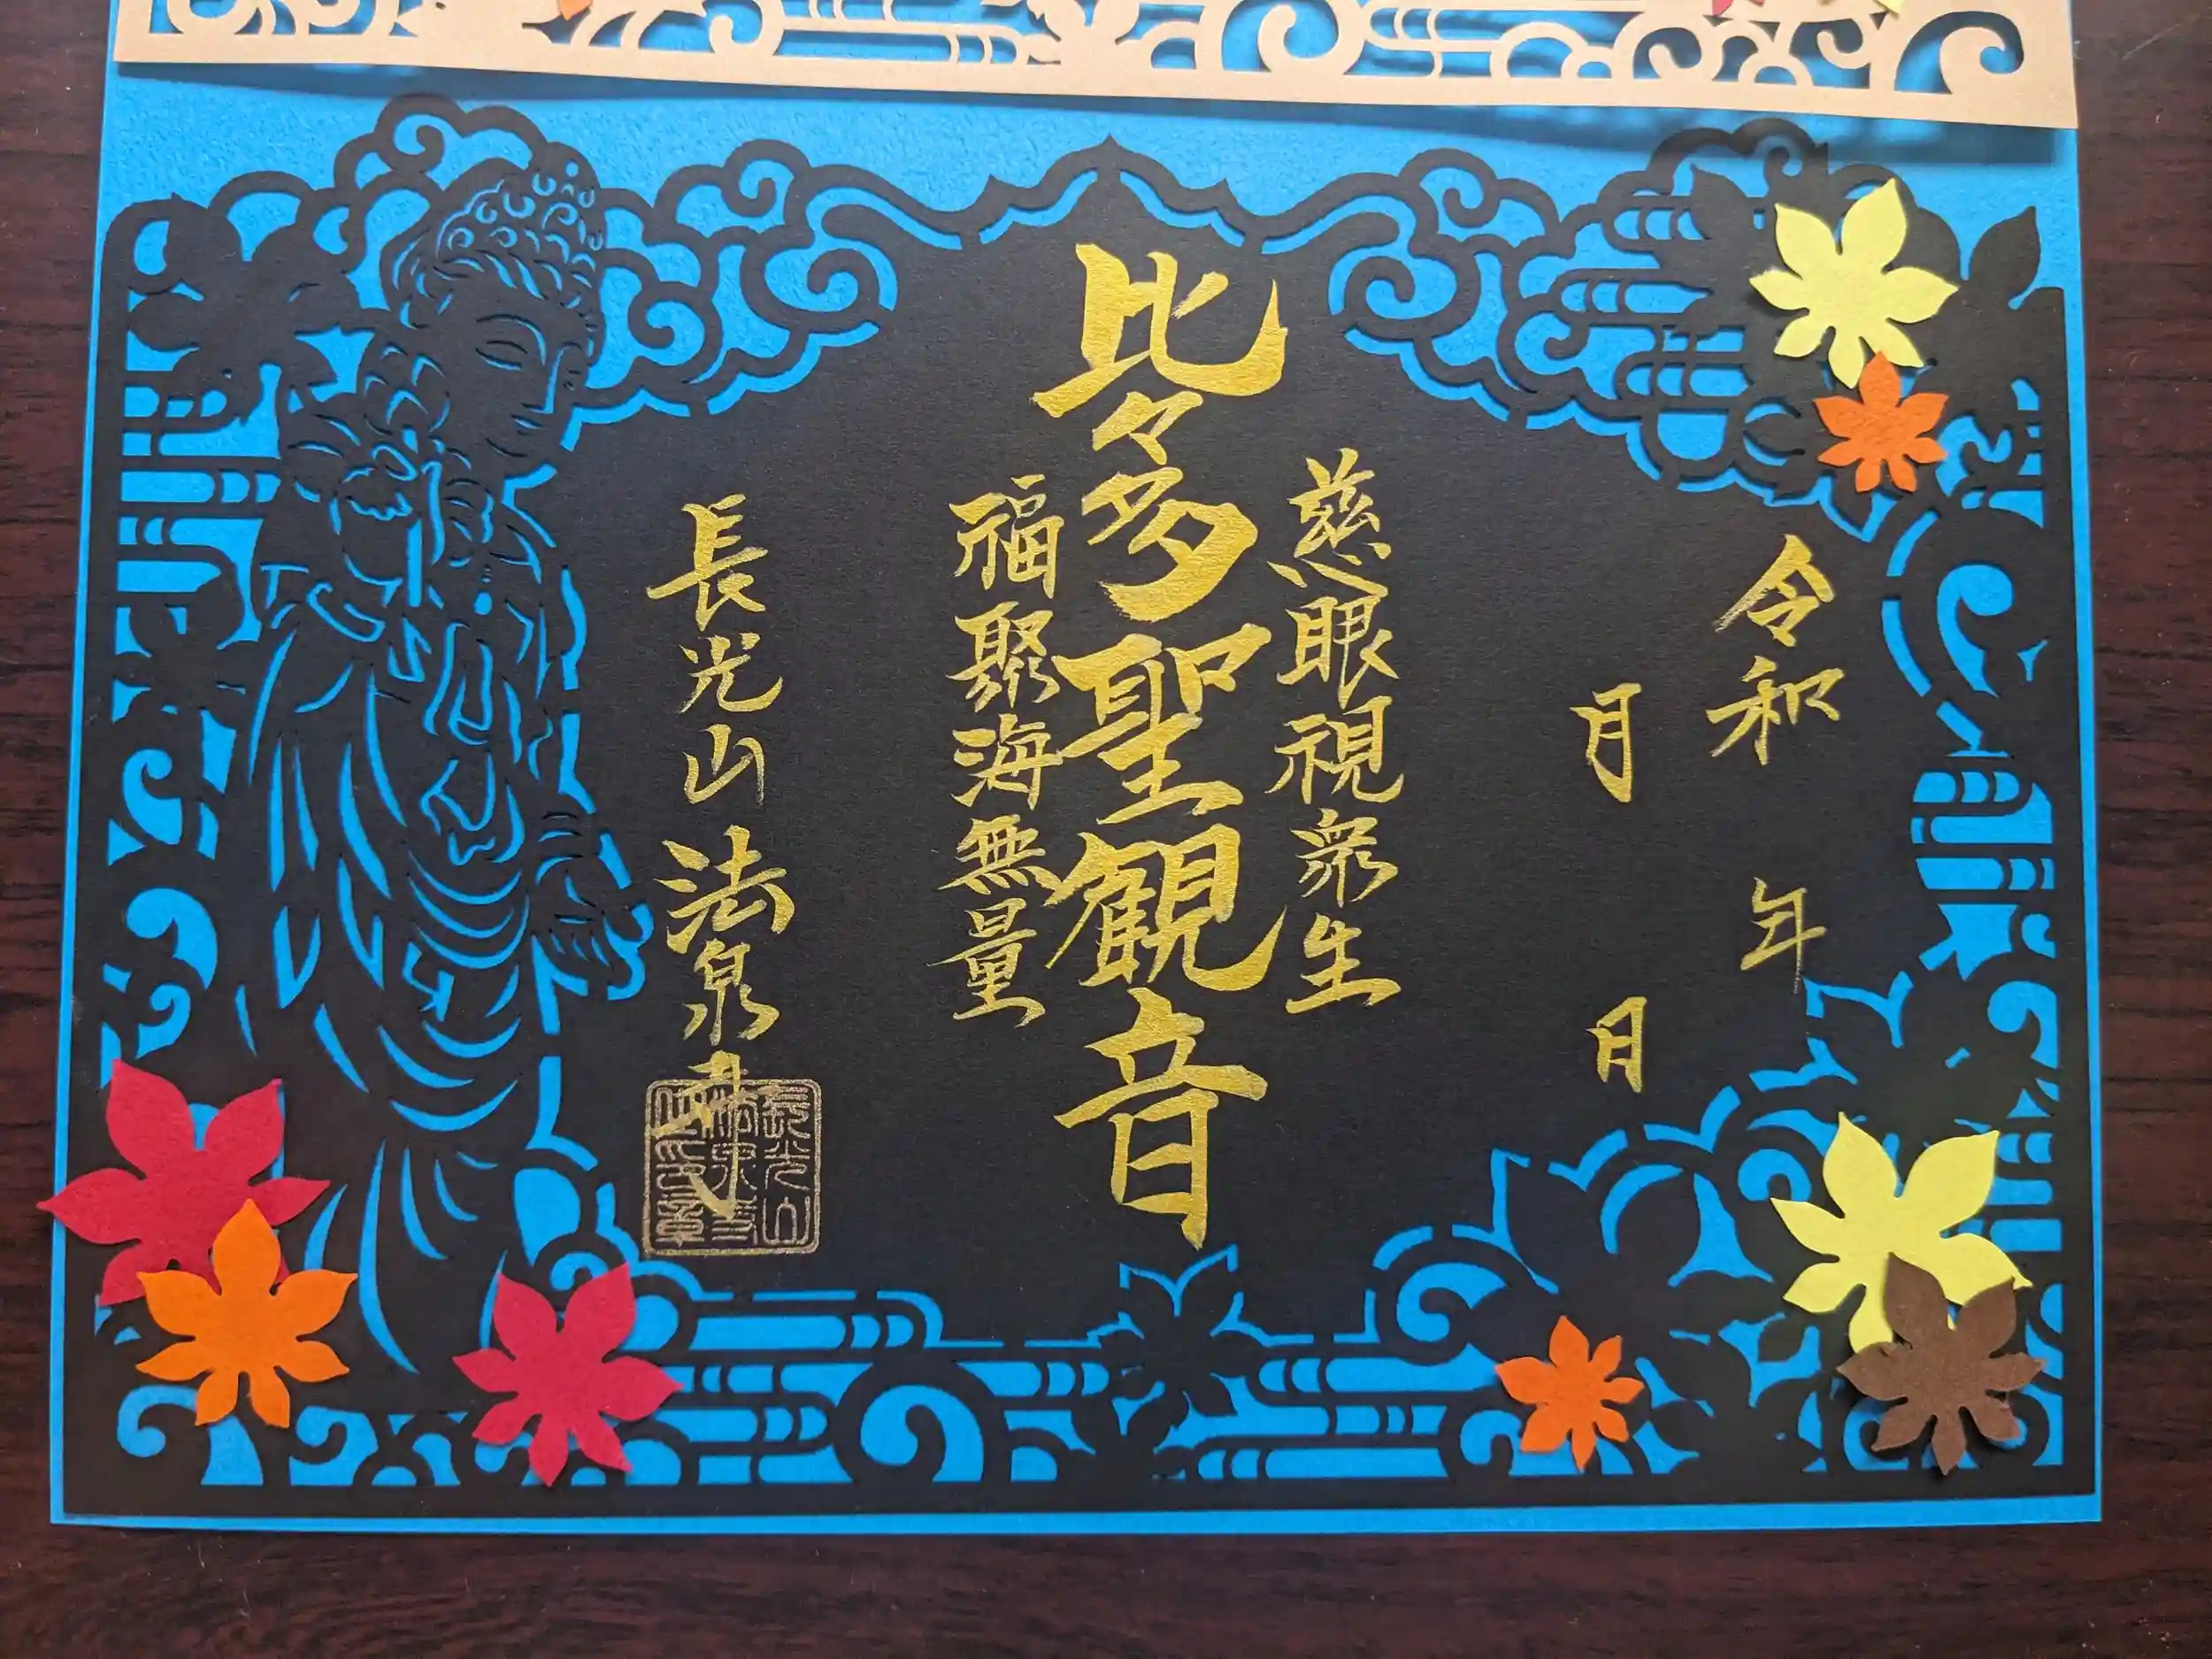 令和 年
月 日
慈眼視衆生
比々多聖観音
福聚海無量
長光山 法泉寺
長光山
法泉寺